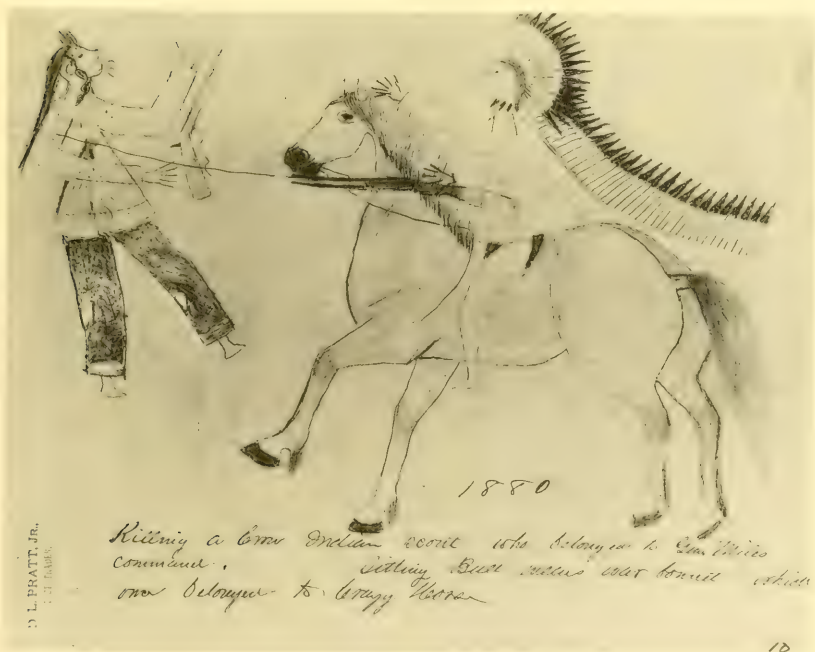 1880
Killing a Crow Indian scout who belonged to Gen Miles
command. Sitting Bull wears war bonnet which
once belonged to Crazy Horse
D L. PRATT, JR.,
10